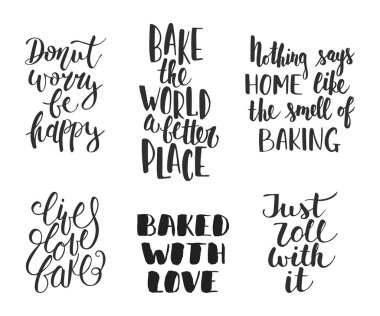 Donut
worry
be
happy
BAKE
the
WORLD
a better
PLACE
Nothing says
HOME like
the smell of
BAKING
live
love
bake
BAKED
WITH
LOVE
Just
roll
with
it